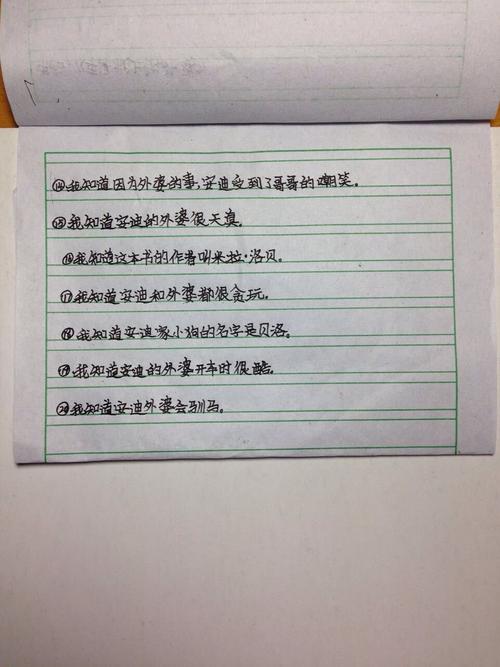 ⑭我知道因为外婆的事,安迪受到了哥哥的嘲笑。
⑮我知道安迪的外婆很天真。
⑯我知道这本书的作者叫米拉·洛贝。
⑰我知道安迪和外婆都很贪玩。
⑱我知道安迪家小狗的名字是贝洛。
⑲我知道安迪的外婆开车时很酷。
⑳我知道安迪外婆会驯马。